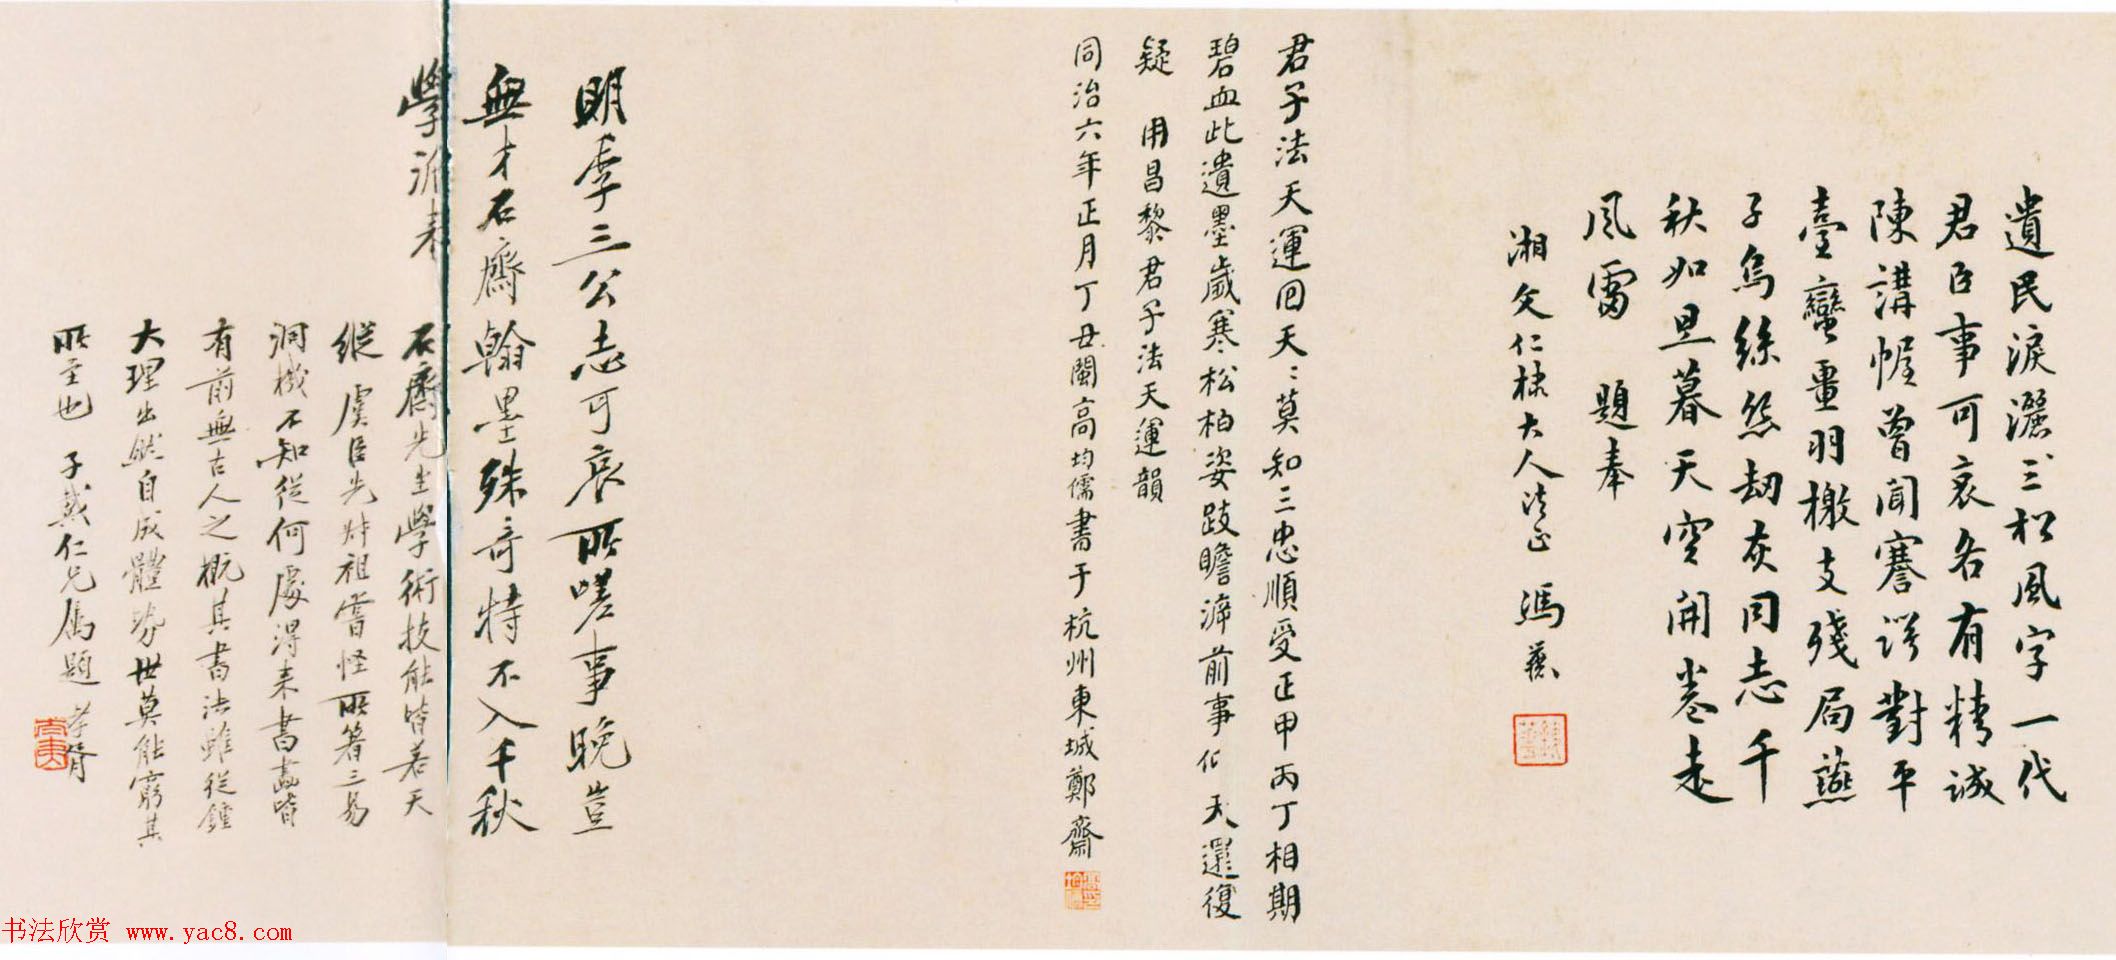 遺民淚灑三松風字一代
君臣事可哀各有精誠
陳講幄曾聞謇諤對平
臺蠻畺羽檄支殘局燕
子烏絲怨劫灰同志千
秋如旦暮天空開卷走
風雷 題奉
湘文仁棣大人法正 馮
君子法天運回天天莫知三忠順受正甲丙丁相期
碧血此遺墨歲寒松柏姿跂瞻漳前事化天還復
疑 用昌黎君子法天運韻
同治六年正月丁丑閩高均儒書于杭州東城鄭齋
明季三公志可哀所嗟事晚豈
無才石齋翰墨殊奇特不入千秋
學派來
石齋先生學術技能皆若天
縱虞臣先叔祖嘗怪所著三易
洞機不知從何處得來書畫皆
有前無古人之概其書法雖從鍾
大理出然自成體勢世莫能窮其
所至也 子戴仁兄屬題
书法欣赏 www.yac8.com